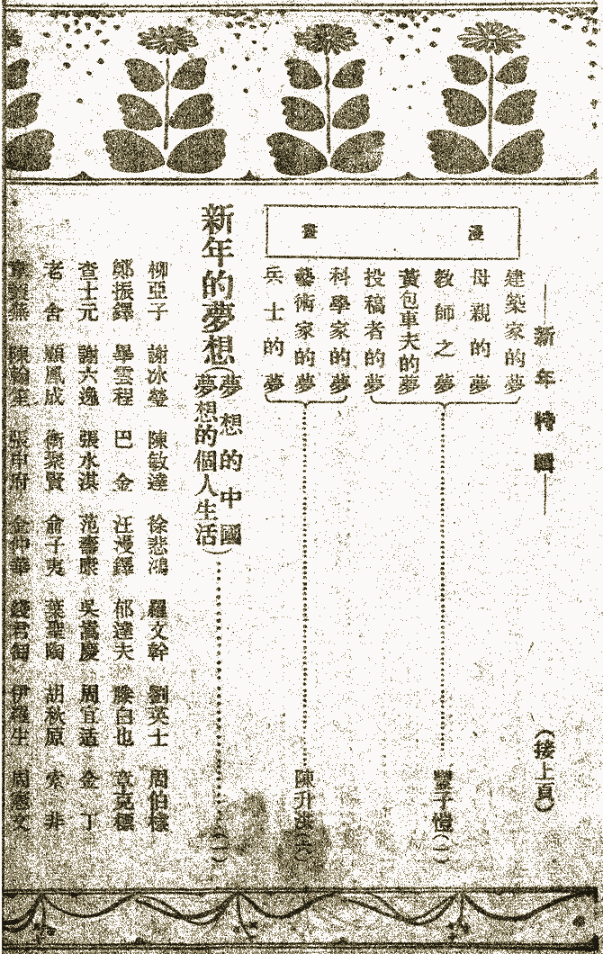 新年特輯
(接上頁)
漫畫
建築家的夢
母親的夢
教師之夢
黃包車夫的夢
投稿者的夢
豐子愷(一)
科學家的夢
藝術家的夢
兵士的夢
陳升洪
新年的夢想(夢想的中國 夢想的個人生活)(一)
柳亞子 謝冰瑩 陳敏達 徐悲鴻 羅文幹 劉英士 周伯棣
鄭振鐸 畢雲程 巴金 汪漫鐸 郁達夫 滕白也 章克標
查士元 謝六逸 張水淇 范壽康 吳嵩慶 周宜适 金丁
老舍 顧鳳成 衛聚賢 俞子夷 葉聖陶 胡秋原 索非
陳翰笙 金仲華 錢君匋 伊羅生